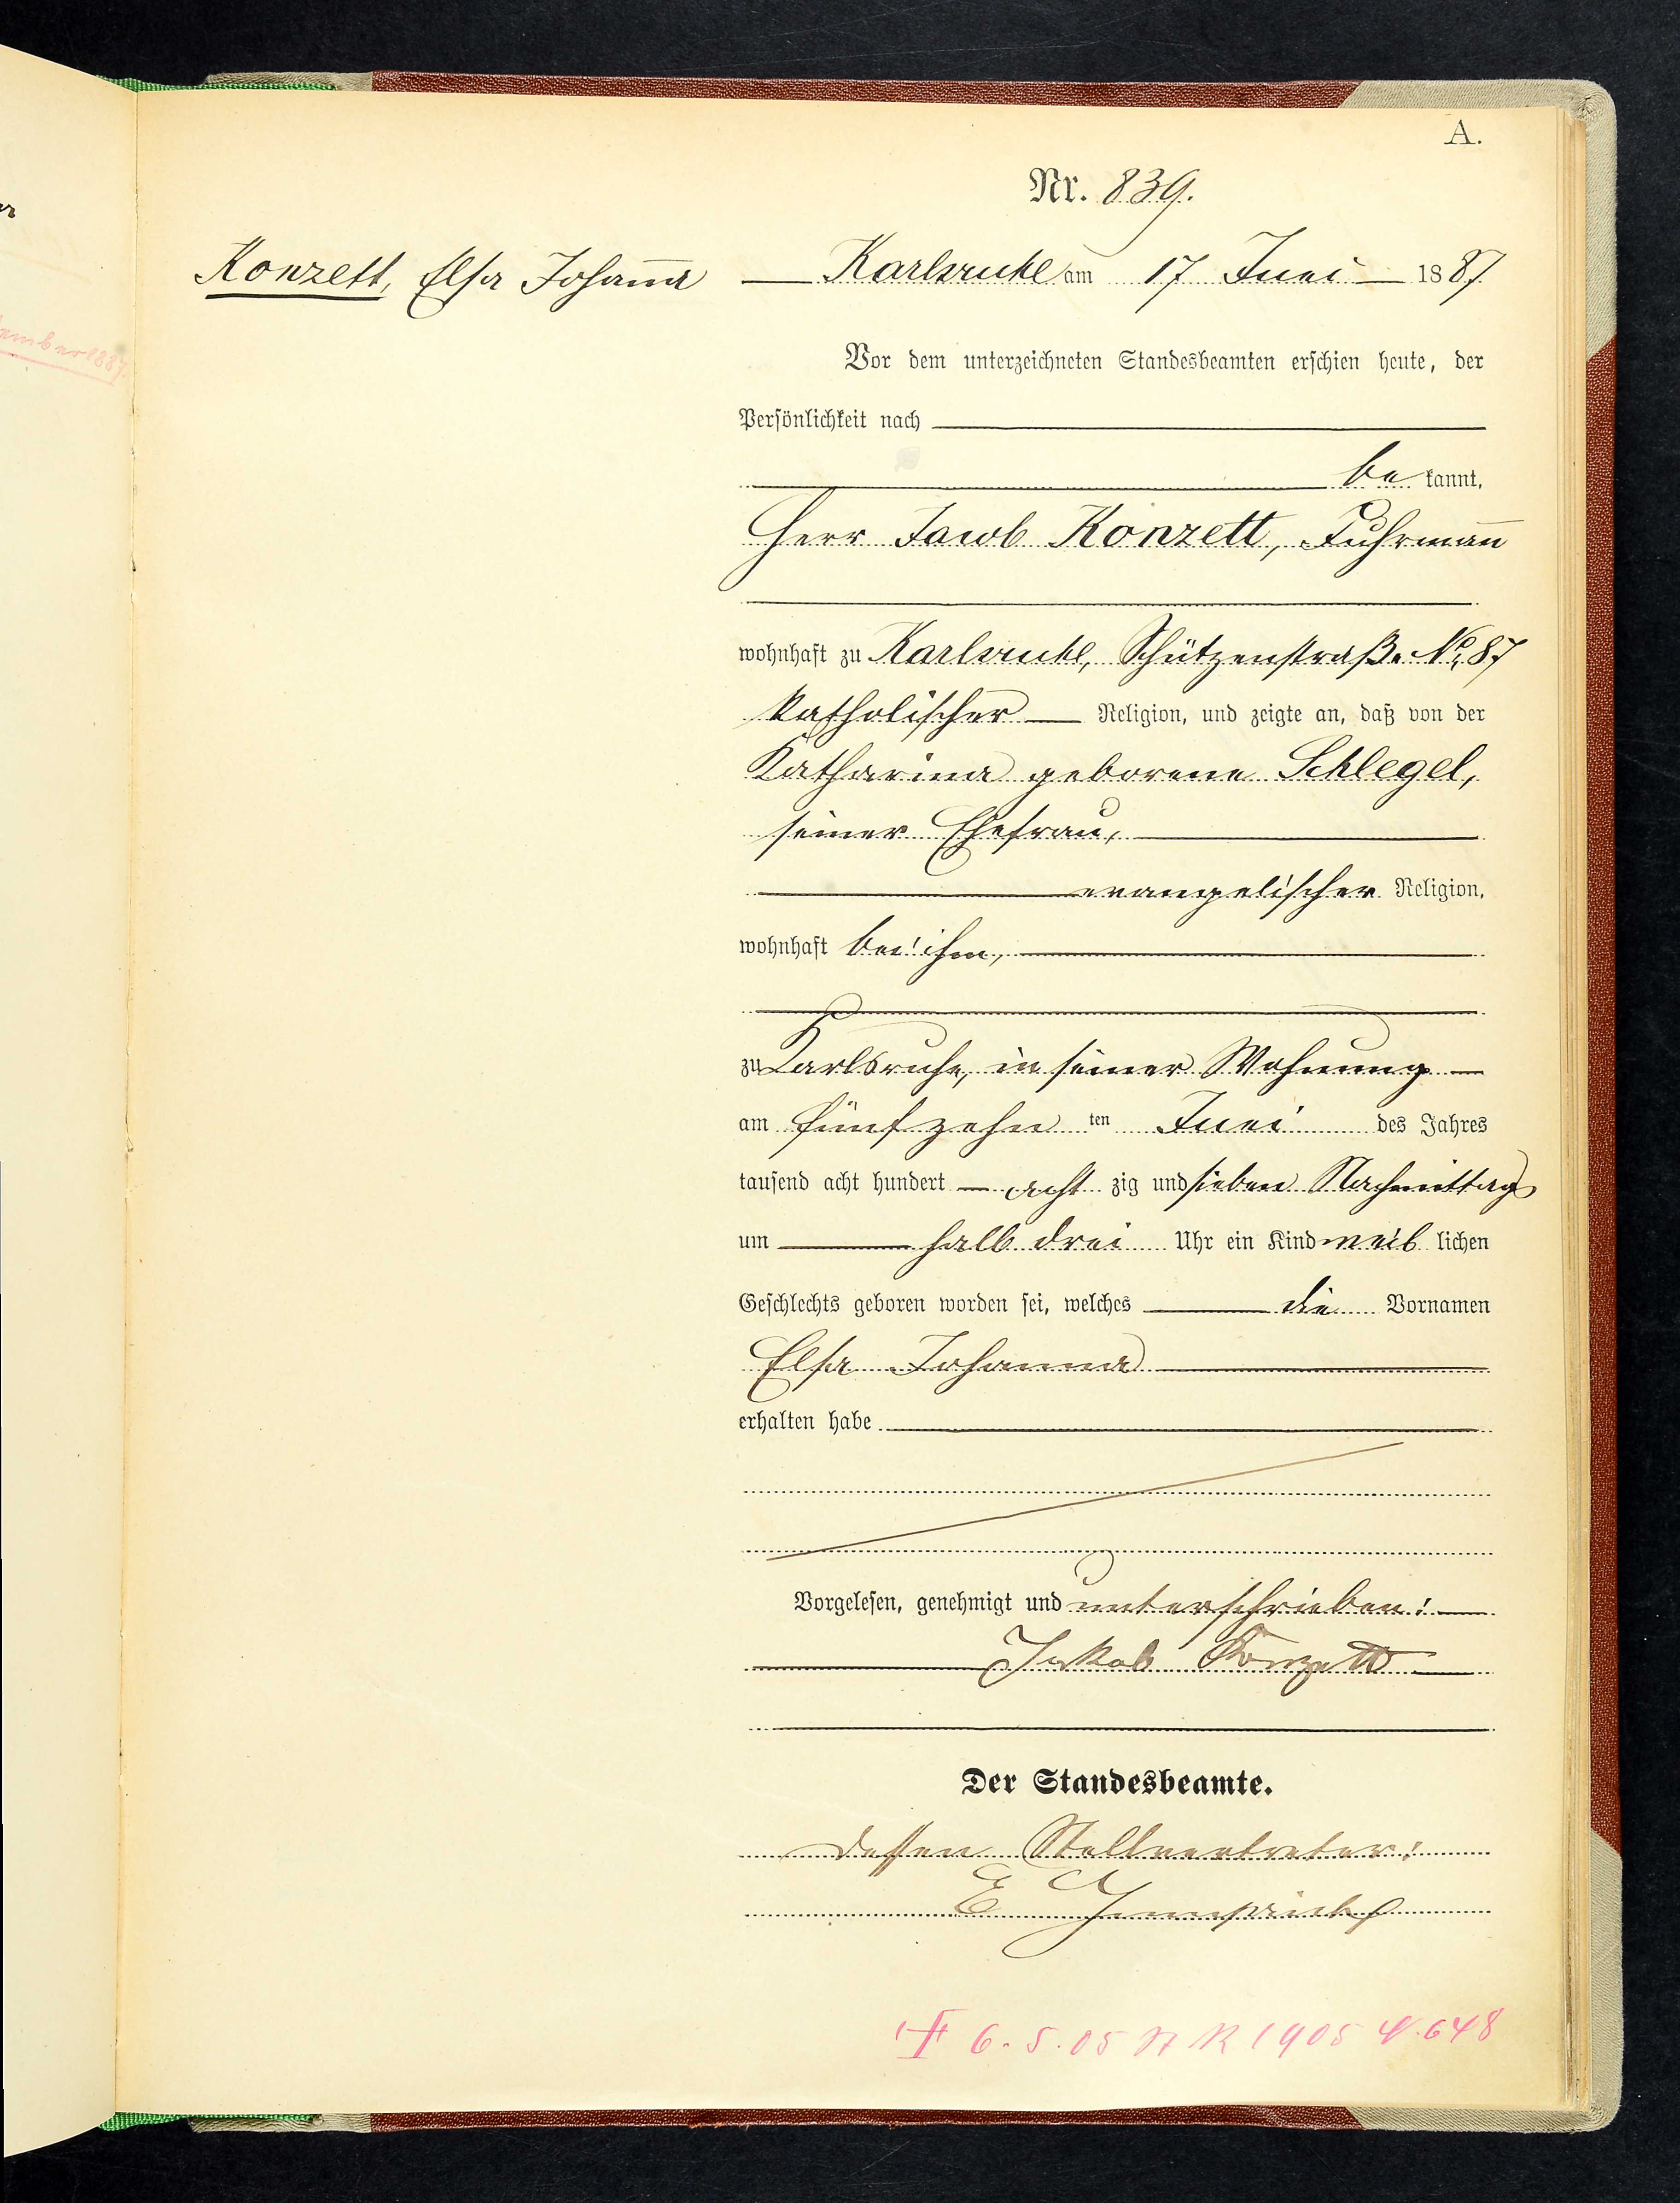 A.
Nr. 839.
Konzett, Elsa Johanna
Karlsruhe am 17 Juni 1887
ember 1887.
Vor dem unterzeichneten Standesbeamten erschien heute, der
Persönlichkeit nach
be kannt,
Herr Jacob Konzett, Fuhrmann
wohnhaft zu Karlsruhe, Schützenstraße No. 87
katholischer Religion, und zeigte an, daß von der
Katharina geborene Schlegel,
seiner Ehefrau,
evangelischer Religion,
wohnhaft bei ihm,
zu Karlsruhe, in seiner Wohnung
am fünfzehn ten Juni des Jahres
tausend acht hundert acht zig und sieben Nachmittags
um halb drei Uhr ein Kind weib lichen
Geschlechts geboren worden sei, welches die Vornamen
Elsa Johanna
erhalten habe
Vorgelesen, genehmigt und unterschrieben:
Jakob Konzett
Der Standesbeamte.
dessen Stellvertreter:
E
6.5.05 1905 N. 648